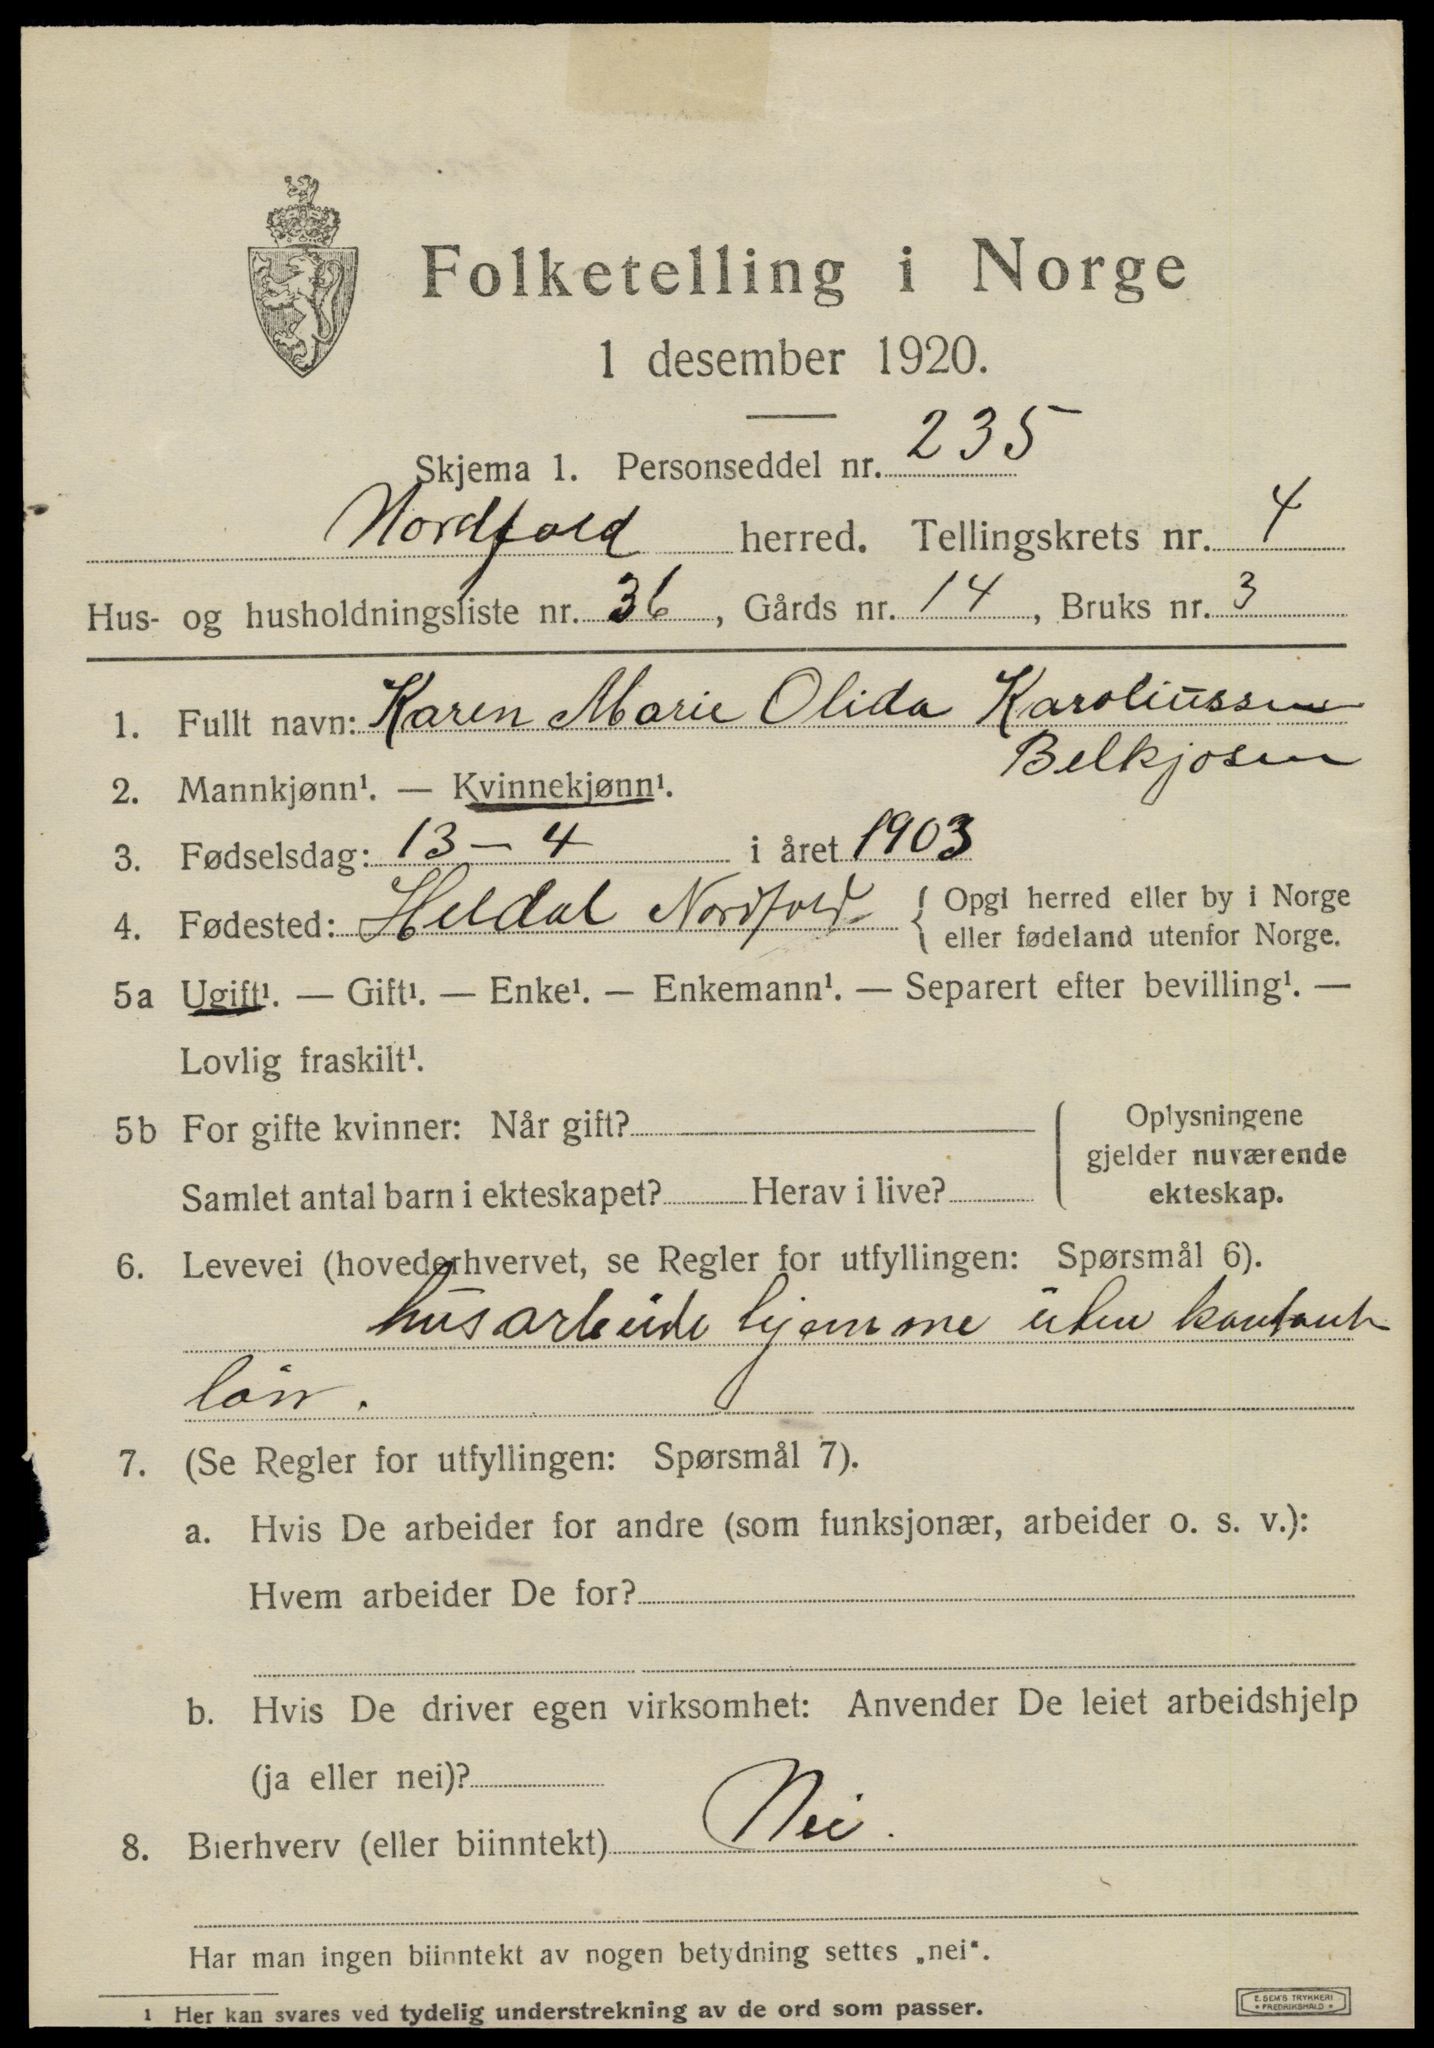 Folketelling i Norge
1 desember 1920.
Skjema 1. Personseddel nr. 235
Nordfold herred. Tellingskrets nr. 4
Hus- og husholdningsliste nr. 36, Gårds nr. 14, Bruks nr. 3
1. Fullt navn: Karen Marie Olida Karoliussen
Belkjosen
2. Mannkjønn¹. — Kvinnekjønn¹.
3. Fødselsdag: 13 – 4 i året 1903
4. Fødested: Heldal Nordfold { Opgi herred eller by i Norge
eller fødeland utenfor Norge.
5a Ugift¹. — Gift¹. — Enke¹. — Enkemann¹. — Separert efter bevilling¹. —
Lovlig fraskilt¹.
5b For gifte kvinner: Når gift?
Samlet antal barn i ekteskapet? Herav i live?
Oplysningene
gjelder nuværende
ekteskap.
6. Levevei (hovederhvervet, se Regler for utfyllingen: Spørsmål 6).
husarbeide hjemme uten kontant
lön.
7. (Se Regler for utfyllingen: Spørsmål 7).
a. Hvis De arbeider for andre (som funksjonær, arbeider o. s. v.):
Hvem arbeider De for?
b. Hvis De driver egen virksomhet: Anvender De leiet arbeidshjelp
(ja eller nei)?
8. Bierhverv (eller biinntekt) Nei.
Har man ingen biinntekt av nogen betydning settes „nei“.
1 Her kan svares ved tydelig understrekning av de ord som passer.
E. SEM'S TRYKKERI
FREDRIKSHALD